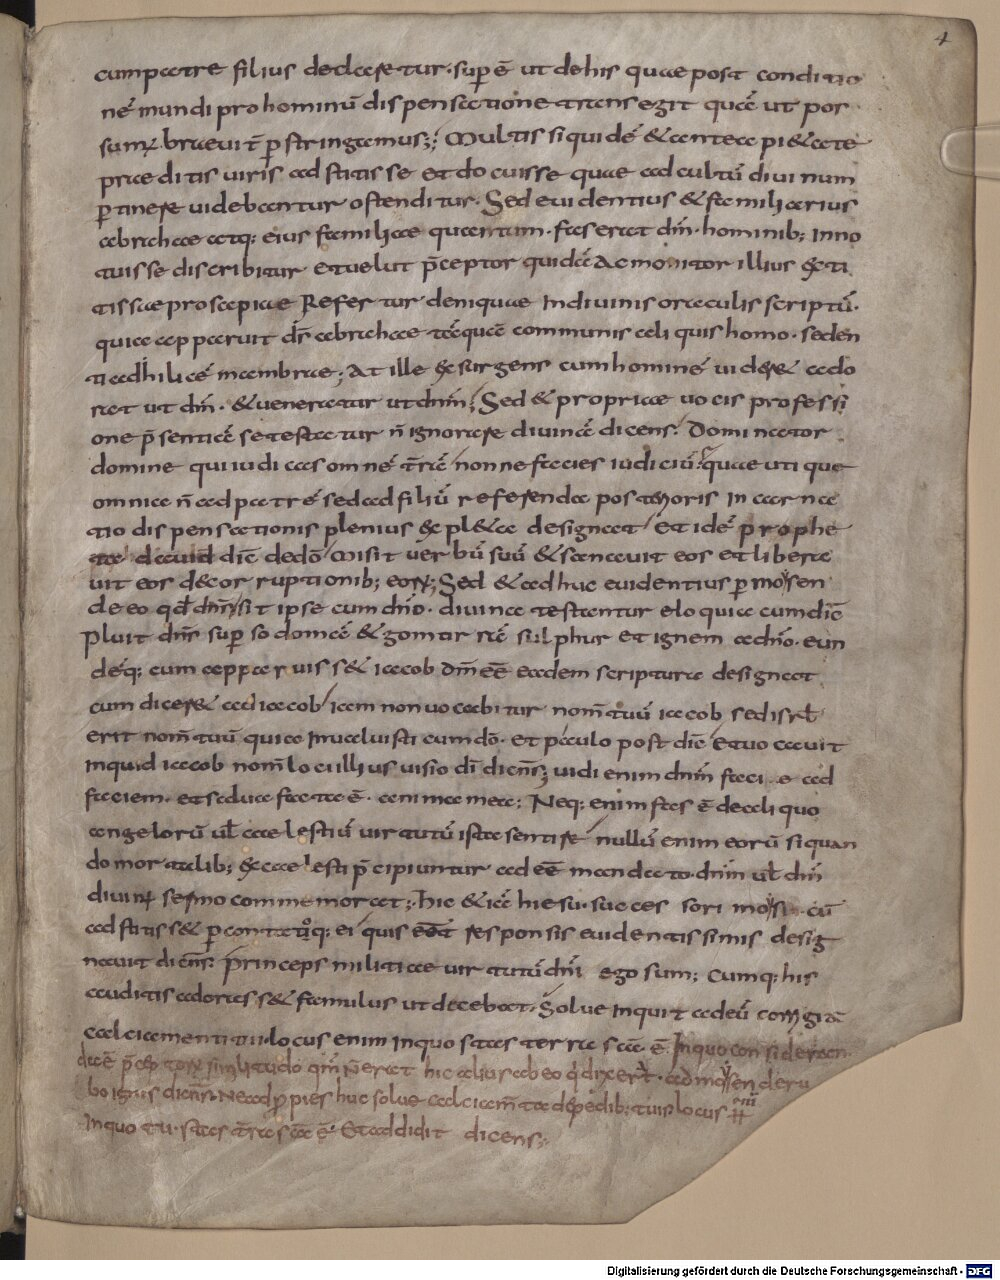 4
cumpatre filius declaretur. sup ē ut dehis quae post conditio
nē mundi prohominū dispensatione transegit quā ut pos
sumꝰ braevit̄ p̄stringamus; Multis siquidē &antea pi&ate
praeditis viris adstitisse et docuisse quae adcultū divinum
ptinere videbantur ostenditur. Sed evidentius &familiarius
abrahae atq: eius familiae quaentum. fas erat dm̄. hominib; inno
tuisse discribitur etvelut p̄ceptor quidā Acmonitor illius &ti
tissiae prosapiae Refertur deniquae Indivinis oraculis scriptū.
quia apparuit ds̄ abrahae taēquā communis aliquis homo. seden
ti adhilicē mambrae; At ille &surgens cumhominē vider& ado
rat ut dm̄. &veneratur ut dnm̄; Sed &propriae vocis professi
one p̄sentiaē se testatur n̄ ignorare divinaē dicens. Dominator
domine qui iudicas omnē t̄raē nonne facies iudiciū. quae utique
omnia n̄ adpatrē sedadfiliū referenda posterioris incarna
tio dispensationis plenius &pl&a designat Et idē prophe
ta david diē dedō Misit verbū suū &sanavit eos et libera
vit eos d&corruptionib; eorꝝ; Sed &adhuc evidentius p moysen
de eo qd̄ dnssit ipse cum dn̄o. divina testantur eloquia cumdiē
Pluit dns̄ sup sodomaē &gomurraē sulphur et ignem adn̄o. eun
dēq: cum apparuiss& iacob dm̄ eē eadem scriptura designat
cum dicer& ad iacob iam non vocabitur nom̄ tuū iacob sed isrl̄
erit nom̄ tuū quia invaluisti cum dō. et paulo post diē Etvocavit
inquid iacob nom̄ loci illius visio dī dicn̄s; vidi enim dnm̄ faci e ad
faciem. et salva facta ē. anima mea; Neq: enim fas ē dealiquo
angelorū vl̄ caelestiū virtutū ista sentire nullū enim eorū siquan
do mortalib; &caelesti p̄cipiuntur adeē mandato. dnm̄ vl̄ dm̄
divinꝰ sermo commemorat; hic &iā hiesu. successori moysi cū
adstitiss& pcontatūq: ei quis eēt responsis evidentissimis desig
navit dicn̄s. princeps militiae virtutū dn̄i ego sum; Cumq: his
auditis adorass& famulus ut decebat. Solve inquit adeū corrigia
calciamenti tui locus enim inquo stas terra scā ē. Inquo consideran
dāē p̄ceptorꝝ similitudo qm̄ n̄ erat hic alius abeo qd̄ dixerit. admoysen deru
bo ignis dicn̄s. Ne adppies huc solve calciam̄ta depedib: tuis locus
inquo tu. stas t̄ra scā ē Et addidit dicens;
Digitalisierung gefördert durch die Deutsche Forschungsgemeinschaft - DFG